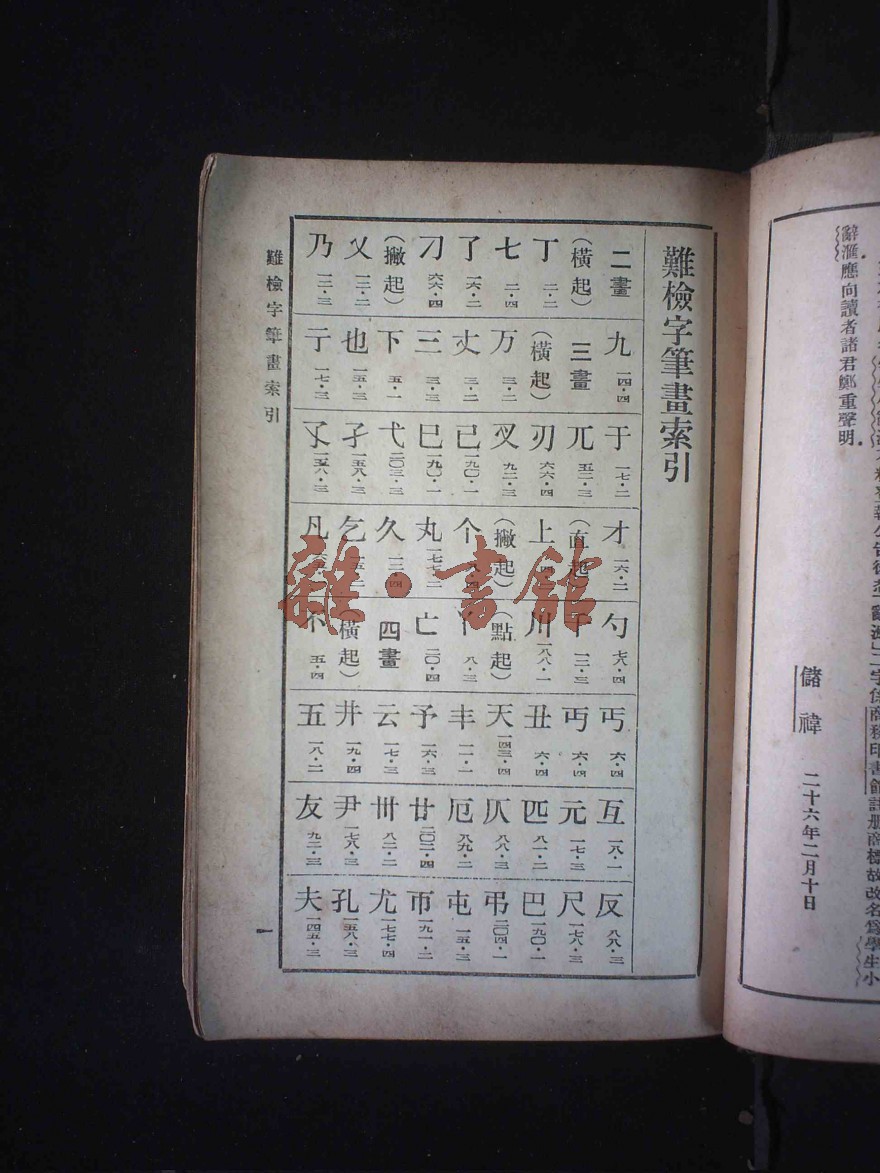 二字係商務印書館註册商標故改名爲學生小
辭滙應向讀者諸君鄭重聲明
儲禕 二十六年二月十日
難檢字筆畫索引
二畫 (橫起) 丁 二·二 七 二·四 了 一六·二 刁 六六·四 (撇起) 乂 一二·二 乃 一二·三
九 一四·四 三畫 (橫起) 万 三·二 丈 三·二 三 三·三 下 五·一 也 一五·三 亍 一七·三
于 一七·二 兀 五二·三 刃 六六·四 叉 九二·三 己 一九〇·一 巳 一九〇·一 弋 二〇三·三 孑 一五八·三 孓 一五八·三
才 一六·二 (直起) 上 (撇起) 个 八·四 丸 一七七·二 久 一二·四 乞 一五·二 凡
勺 七八·四 千 一二·三 川 一八八·一 (點起) 丫 八·三 亡 二〇·四 四畫 (橫起) 不 五·四
丐 六·四 丏 六·四 丑 六·四 天 一四三·四 丰 一一·一 予 一六·三 云 一七·三 井 一九·四 五 一八·二
互 一八·一 元 一七·三 匹 八一·二 仄 八八·三 厄 八九·二 廿 二〇二·四 卅 八二·二 尹 一七八·三 友 九二·三
反 八八·三 尺 一七八·三 巴 一九〇·一 弔 二〇四·一 屯 一五·三 帀 一九一·二 尤 一七七·四 孔 一五八·三 夫 一四五·三
難檢字筆畫索引
一